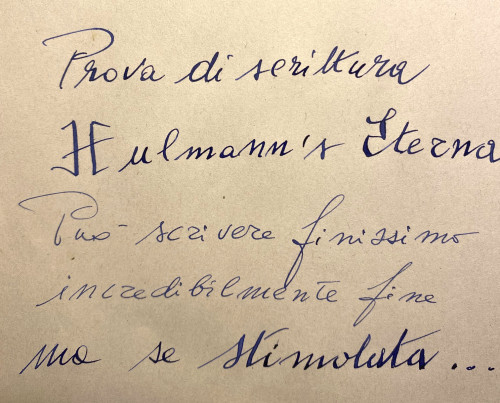 Prova di scrittura
Hulmann's Eterna
Può scrivere finissimo
incredibilmente fine
ma se stimolata...